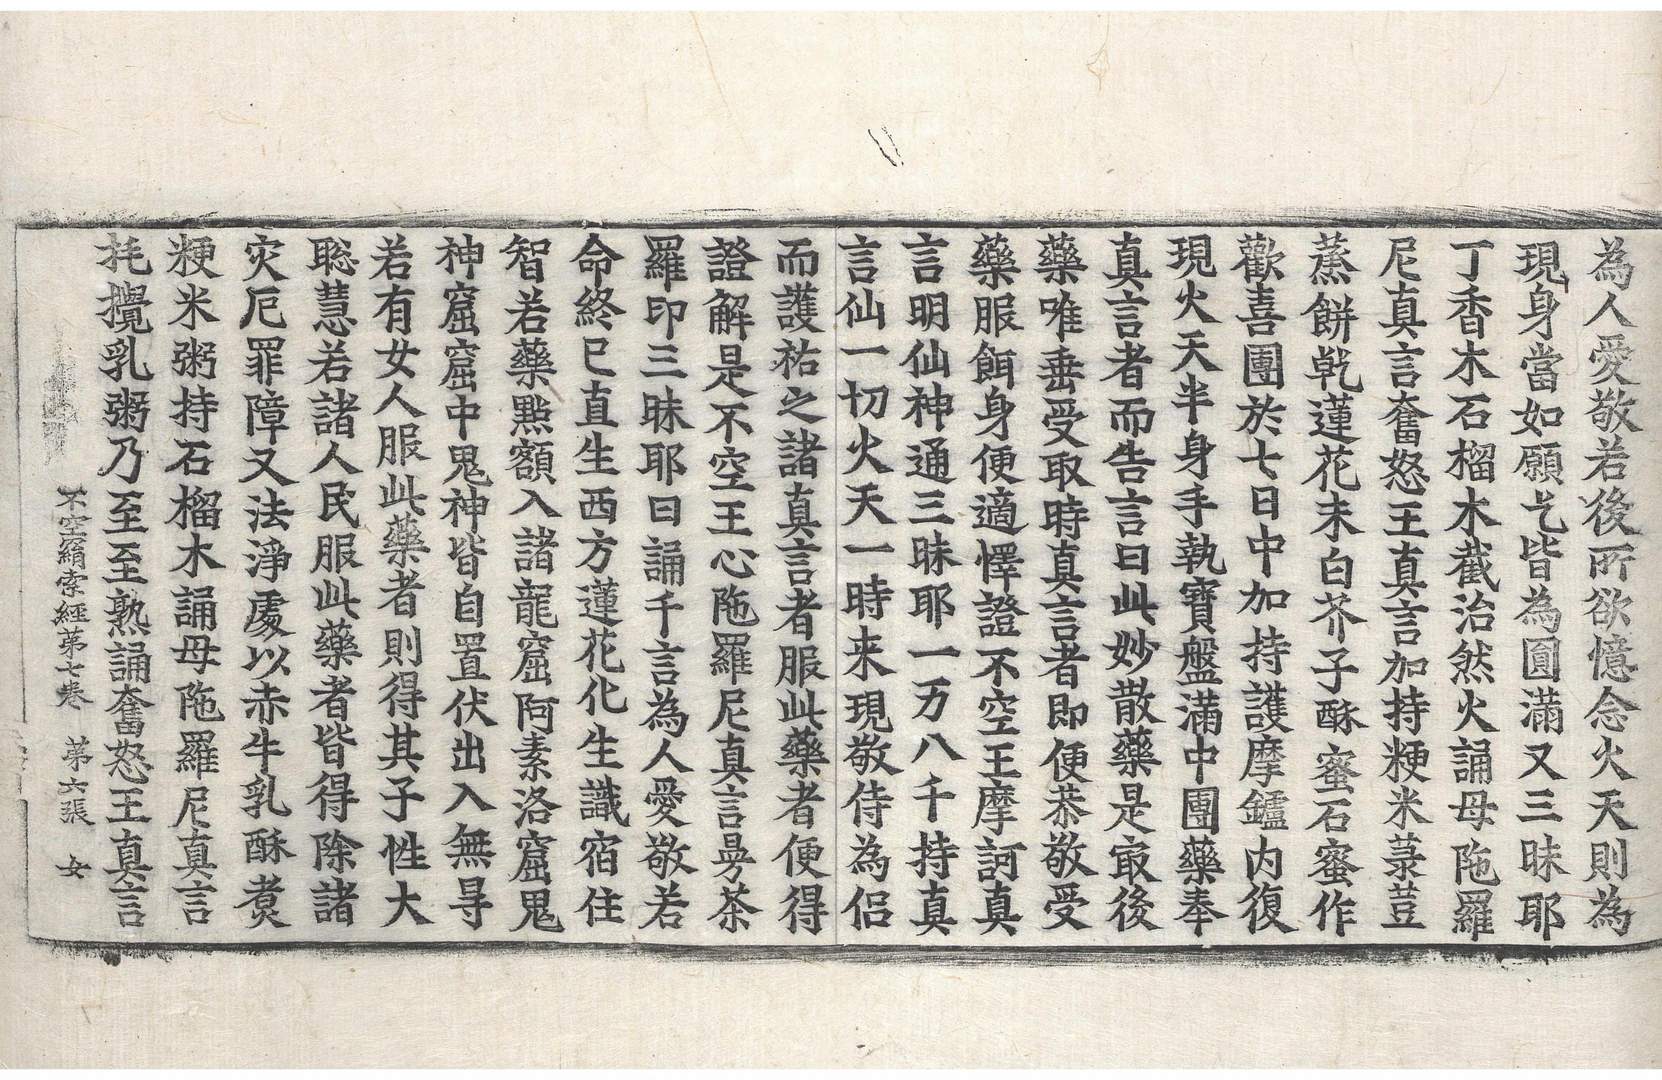 為人愛敬若後所欲憶念火天則為
現身當如願乞皆為圎滿又三昧耶
丁香木石榴木截治然火誦母陁羅
尼真言奮怒王真言加持粳米菉荳
蒸餅乾蓮花末白芥子酥蜜石蜜作
歡喜團於七日中加持護摩鑪内復
現火天半身手執寶盤滿中團藥奉
真言者而告言曰此妙散藥是㝡後
藥唯垂受取時真言者即便恭敬受
藥服餌身便適懌證不空王摩訶真
言明仙神通三昧耶一万八千持真
言仙一切火天一時来現敬侍為侶
而護祐之諸真言者服此藥者便得
證解是不空王心陁羅尼真言曼荼
羅印三昧耶曰誦千言為人愛敬若
命終已直生西方蓮花化生識宿住
智若藥㸃額入諸龍窟阿素洛窟鬼
神窟窟中鬼神皆自置伏出入無㝵
若有女人服此藥者則得其子性大
聡慧若諸人民服此藥者皆得除諸
灾厄罪障又法淨處以赤牛乳酥煑
粳米粥持石榴木誦母陁羅尼真言
托攪乳粥乃至至熟誦奮怒王真言
不空羂索經第七卷 第六張 女